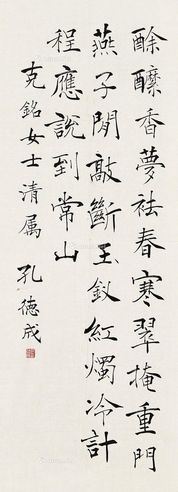 酴醾香夢怯春寒翠掩重門
燕子閒敲斷玉釵紅燭冷計
程應說到常山
克銘女士清属 孔德成